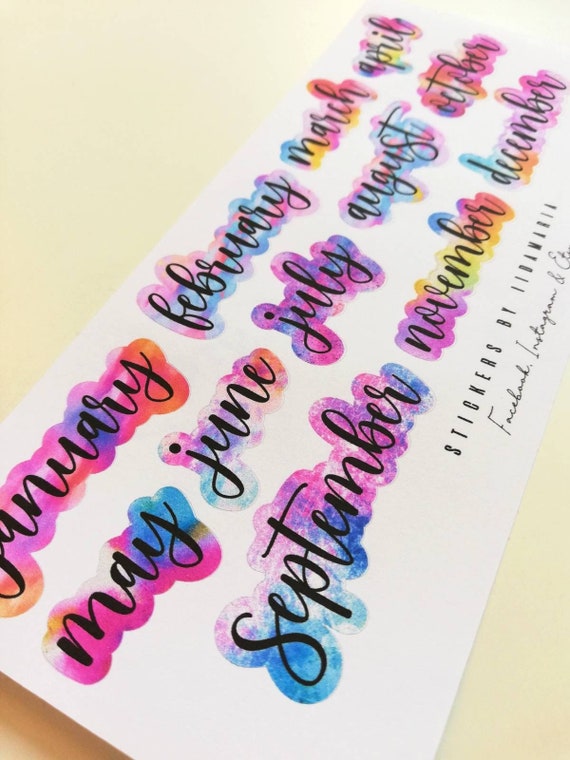 january
february
march
april
may
june
july
august
october
September
november
december
STICKERS BY IIDAMARIA
Facebook, Instagram & Etsy